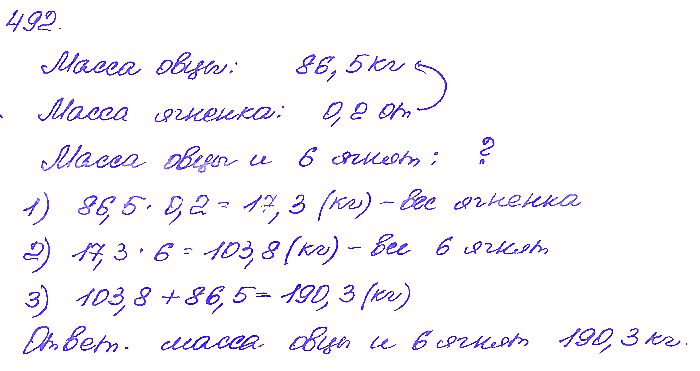 492.
Масса овцы: 86,5 кг
Масса ягненка: 0,2 от
Масса овцы и 6 ягнят: ?
1) 86,5 · 0,2 = 17,3 (кг) – вес ягненка
2) 17,3 · 6 = 103,8 (кг) – вес 6 ягнят
3) 103,8 + 86,5 = 190,3 (кг)
Ответ. масса овцы и 6 ягнят 190,3 кг.